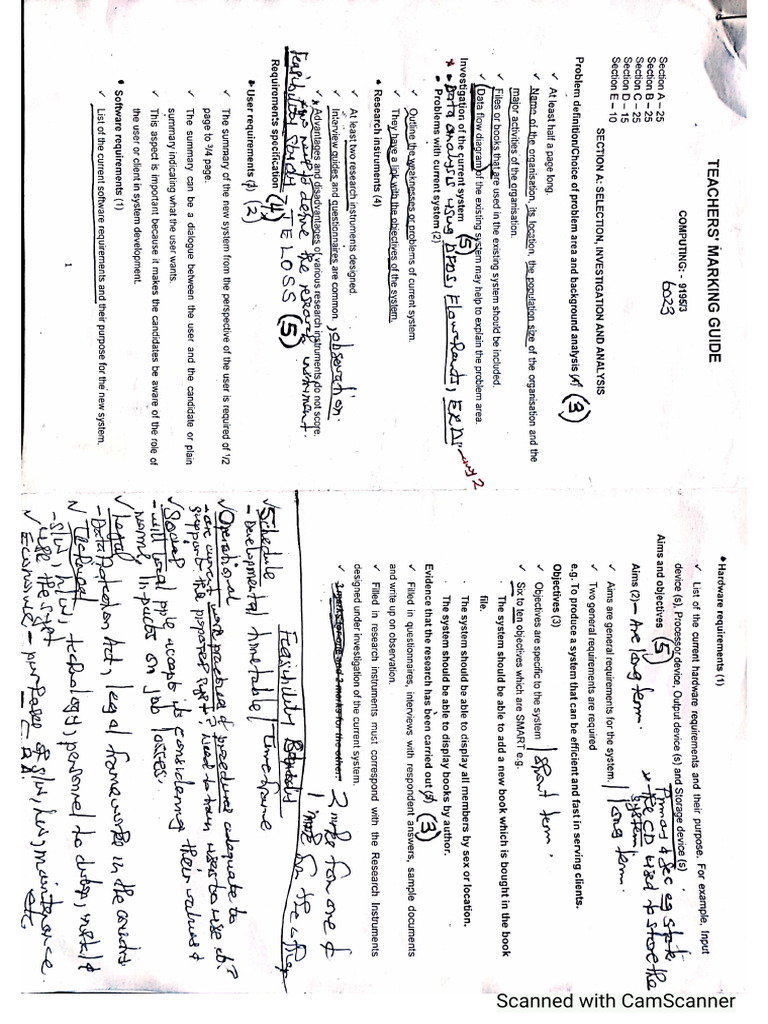 TEACHERS' MARKING GUIDE
COMPUTING: - 9195/3
6023
Section A – 25
Section B – 25
Section C – 25
Section D – 15
Section E – 10
SECTION A: SELECTION, INVESTIGATION AND ANALYSIS
Problem definition/Choice of problem area and background analysis (3)
✓ At least half a page long.
✓ Name of the organisation, its location, the population size of the organisation and the
major activities of the organisation.
✓ Files or books that are used in the existing system should be included.
✓ Data flow diagram of the existing system may help to explain the problem area.
Investigation of the current system (5)
* • Data analysis using DFDs, Flowcharts, ERDs any 2
• Problems with current system (2)
✓ Outline the weaknesses or problems of current system.
✓ They have a link with the objectives of the system.
• Research instruments (4)
✓ At least two research instruments designed.
✓ Interview guides and questionnaires are common. , observation.
✓ Advantages and disadvantages of various research instruments do not score.
* no need to define the research instrument.
Requirements specification (4)
feasibility study – TELOSS (5)
• User requirements (2)
✓ The summary of the new system from the perspective of the user is required of 1/2
page to 3/4 page.
✓ The summary can be a dialogue between the user and the candidate or plain
summary indicating what the user wants.
✓ This aspect is important because it makes the candidates be aware of the role of
the user or client in system development.
• Software requirements (1)
✓ List of the current software requirements and their purpose for the new system.
1
• Hardware requirements (1)
✓ List of the current hardware requirements and their purpose. For example, Input
device (s), Processor device, Output device (s) and Storage device (s)
Primary & Sec eg state
the CD used to store the
system
Aims and objectives (5)
Aims (2) – Are long term.
✓ Aims are general requirements for the system. / long term.
✓ Two general requirements are required
e.g. To produce a system that can be efficient and fast in serving clients.
Objectives (3)
✓ Objectives are specific to the system / short term.
✓ Six to ten objectives which are SMART e.g.
· The system should be able to add a new book which is bought in the book
file.
· The system should be able to display all members by sex or location.
· The system should be able to display books by author.
Evidence that the research has been carried out (3)
✓ Filled in questionnaires, interviews with respondent answers, sample documents
and write up on observation.
✓ Filled in research instruments must correspond with the Research Instruments
designed under investigation of the current system.
✓ 3 marks for one and 2 marks for the other. 2 mks for one &
1 mark for the other
Feasibility Report
✓ Schedule
- Developmental timetable/timeframe
✓ Operational
- are current work practices & procedures adequate to
support the proposed syst? Need to train users to use it?
✓ Social
- will local pple accept it considering their values &
norms, Impacts on job losses.
✓ Legal
- Data Protection Act, legal frameworks in the country
✓ Technical
- s/w, h/w, technology, personnel to design, install &
use the syst
✓ Economic – purchases of s/w, h/w, maintenance etc
- C.B.A.
Scanned with CamScanner